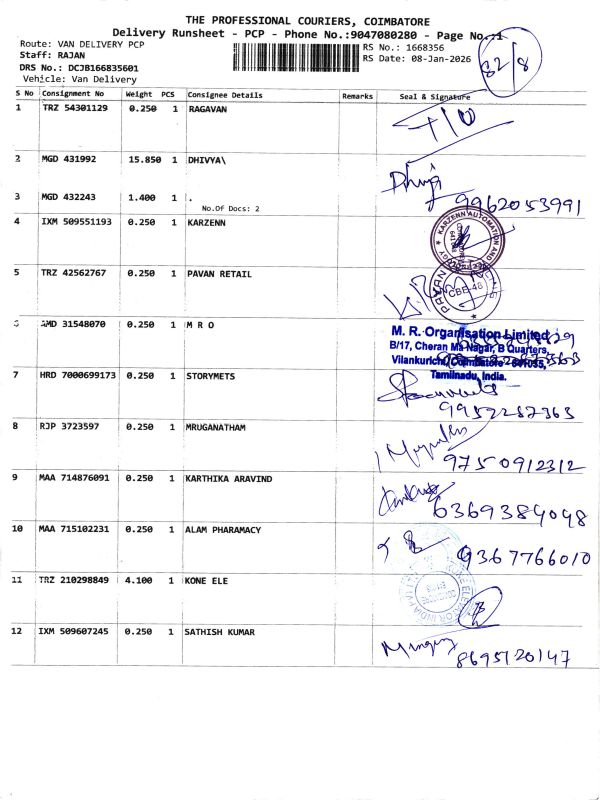 THE PROFESSIONAL COURIERS, COIMBATORE
Delivery Runsheet - PCP - Phone No.:9047080280 - Page No.:1
Route: VAN DELIVERY PCP
Staff: RAJAN
DRS No.: DCJB166835601
Vehicle: Van Delivery
RS No.: 1668356
RS Date: 08-Jan-2026
82/8
S No Consignment No Weight PCS Consignee Details Remarks Seal & Signature
1 TRZ 54301129 0.250 1 RAGAVAN
2 MGD 431992 15.850 1 DHIVYA\
3 MGD 432243 1.400 1 . 9962053991
No.Of Docs: 2
4 IXM 509551193 0.250 1 KARZENN
5 TRZ 42562767 0.250 1 PAVAN RETAIL
CBE-48
6 AMD 31548070 0.250 1 M R O
M. R. Organisation Limited
B/17, Cheran Ma Nagar, B Quarters,
Vilankurichi, Coimbatore - 641035,
Tamilnadu, India.
7 HRD 7000699173 0.250 1 STORYMETS
9952287363
8 RJP 3723597 0.250 1 MRUGANATHAM
9750912312
9 MAA 714876091 0.250 1 KARTHIKA ARAVIND
6369384048
10 MAA 715102231 0.250 1 ALAM PHARAMACY
9367766010
11 TRZ 210298849 4.100 1 KONE ELE
12 IXM 509607245 0.250 1 SATHISH KUMAR
8695120147